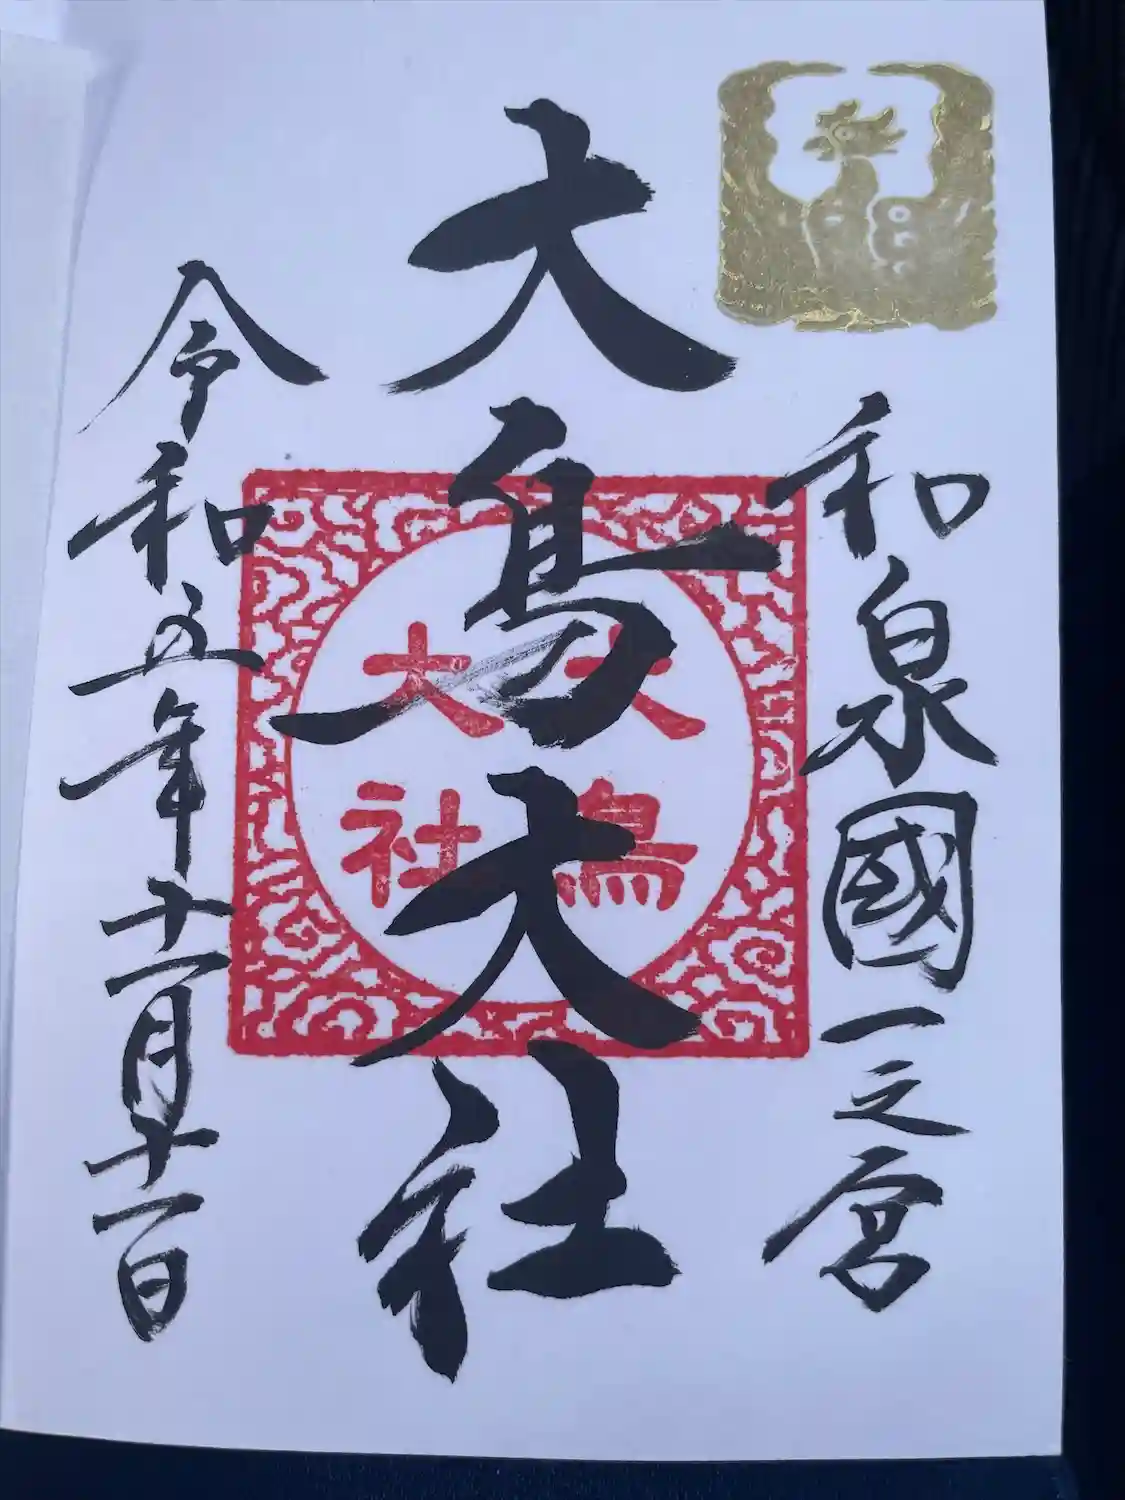 和泉國一之宮
大鳥大社
大鳥
大社
令和五年十一月十一日